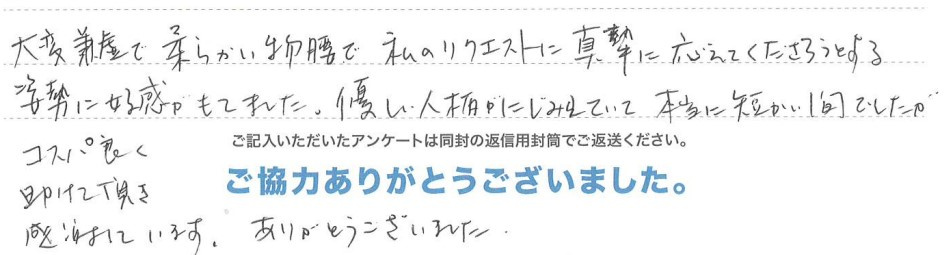 大変謙虚で柔らかい物腰で 私のリクエストに真摯に応えてくださろうとする
姿勢に好感がもてました。優しい人柄がにじみでていて 本当に短かい間でしたが
ご記入いただいたアンケートは同封の返信用封筒でご返送ください。
コスパ良く
ご協力ありがとうございました。
助けて頂き
感謝しています。ありがとうございました.